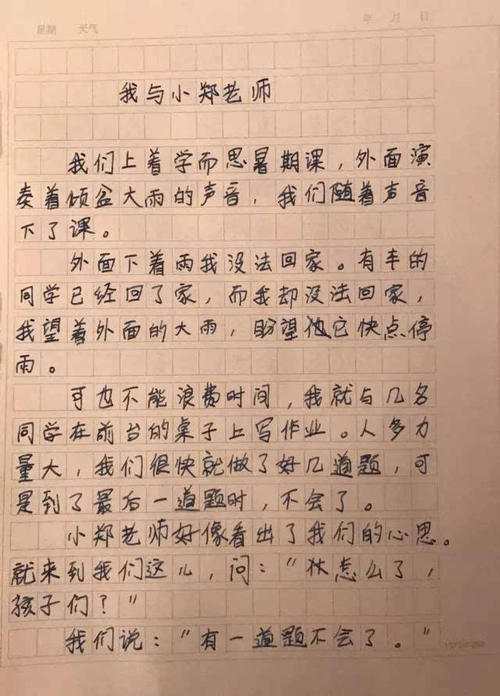 星期 天气 年 月 日
我与小郑老师
我们上着学而思暑期课，外面演
奏着倾盆大雨的声音，我们随着声音
下了课。
外面下着雨我没法回家。有车的
同学已经回了家，而我却没法回家，
我望着外面的大雨，盼望它快点停
雨。
可也不能浪费时间，我就与几名
同学在前台的桌子上写作业。人多力
量大，我们很快就做了好几道题，可
是到了最后一道题时，不会了。
小郑老师好像看出了我们的心思。
就来到我们这儿，问：“怎么了，
孩子们？”
我们说：“有一道题不会了。”